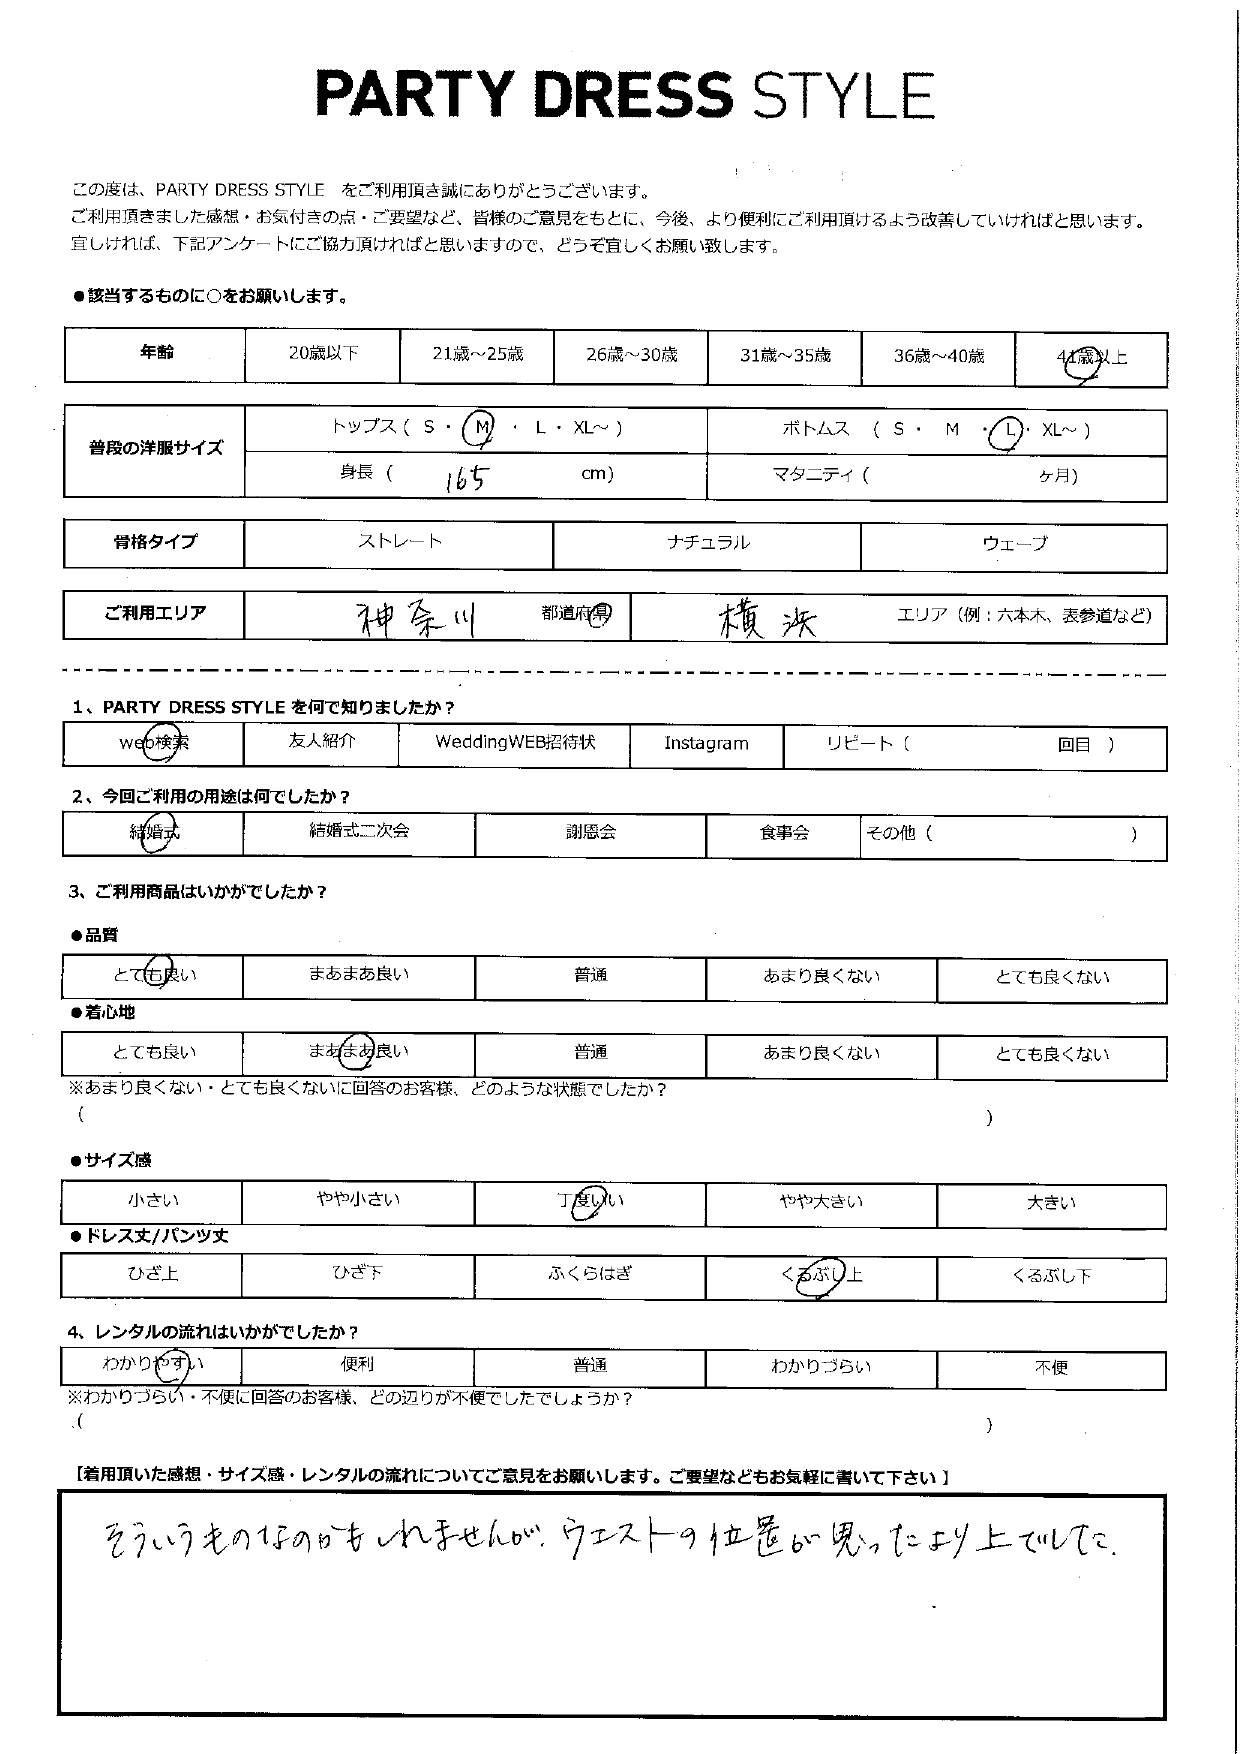 PARTY DRESS STYLE
この度は、PARTY DRESS STYLE をご利用頂き誠にありがとうございます。
ご利用頂きました感想・お気付きの点・ご要望など、皆様のご意見をもとに、今後、より便利にご利用頂けるよう改善していければと思います。
宜しければ、下記アンケートにご協力頂ければと思いますので、どうぞ宜しくお願い致します。
●該当するものに○をお願いします。
年齢 20歳以下 21歳～25歳 26歳～30歳 31歳～35歳 36歳～40歳 41歳以上
普段の洋服サイズ
トップス ( S ・ M ・ L ・ XL～ ) ボトムス ( S ・ M ・ L ・ XL～ )
身長 ( 165 cm) マタニティ ( ヶ月)
骨格タイプ ストレート ナチュラル ウェーブ
ご利用エリア 神奈川 都道府県 横浜 エリア（例：六本木、表参道など）
1、PARTY DRESS STYLE を何で知りましたか？
web検索 友人紹介 WeddingWEB招待状 Instagram リピート ( 回目 )
2、今回ご利用の用途は何でしたか？
結婚式 結婚式二次会 謝恩会 食事会 その他 ( )
3、ご利用商品はいかがでしたか？
●品質
とても良い まあまあ良い 普通 あまり良くない とても良くない
●着心地
とても良い まあまあ良い 普通 あまり良くない とても良くない
※あまり良くない・とても良くないに回答のお客様、どのような状態でしたか？
( )
●サイズ感
小さい やや小さい 丁度いい やや大きい 大きい
●ドレス丈/パンツ丈
ひざ上 ひざ下 ふくらはぎ くるぶし上 くるぶし下
4、レンタルの流れはいかがでしたか？
わかりやすい 便利 普通 わかりづらい 不便
※わかりづらい・不便に回答のお客様、どの辺りが不便でしたでしょうか？
( )
【着用頂いた感想・サイズ感・レンタルの流れについてご意見をお願いします。ご要望などもお気軽に書いて下さい 】
そういうものなのかもしれませんが、ウエストの位置が思ったより上でした.